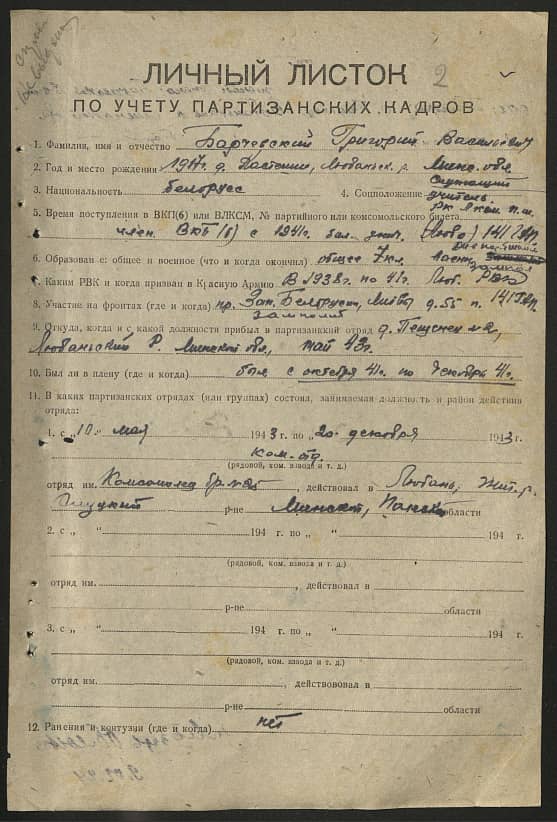 2
ЛИЧНЫЙ ЛИСТОК
ПО УЧЕТУ ПАРТИЗАНСКИХ КАДРОВ
1. Фамилия, имя и отчество Барчевский Григорий Васильевич
2. Год и место рождения 1917г. д. Костешы, Любаньск. р. Минс. обл.
3. Национальность белорусс 4. Соцположение служащий
учитель.
5. Время поступления в ВКП(б) или ВЛКСМ, № партийного или комсомольского билета
член ВКП(б) с 1941г.
6. Образован е: общее и военное (что и когда окончил) общее 7 кл.
7. Каким РВК и когда призван в Красную Армию В 1938г. по 41г. Люб. РВК
8. Участие на фронтах (где и когда) Зап. Белорусс, Литва д. 55 п. 141
замполит
9. Откуда, когда и с какой должности прибыл в партизанкий отряд д.
Любаньский р. Минской обл., май 43г.
10. Был ли в плену (где и когда) был с октября 41г. по декабрь 41г.
11. В каких партизанских отрядах (или группах) состоял, занимаемая должность и район действия
отряда:
1. с „10„ мая 1943 г. по „ 20„ декабря 1943г.
ком. отд.
(рядовой, ком. взвода и т. д.)
отряд им. Комсомолец бр. №25, действовал в Любань, Жит. р.
Слуцкий р-не Минской, области
2. с „ “ 194 г. по „ “ 194 г.
(рядовой, ком. взвода и т. д.)
отряд им. , действовал в
р-не области
3. с „ “ 194 г. по „ “ 194 г.
(рядовой, ком. взвода и т. д.)
отряд им. , действововал в
р-не области
12. Ранения и контузии (где и когда) нет